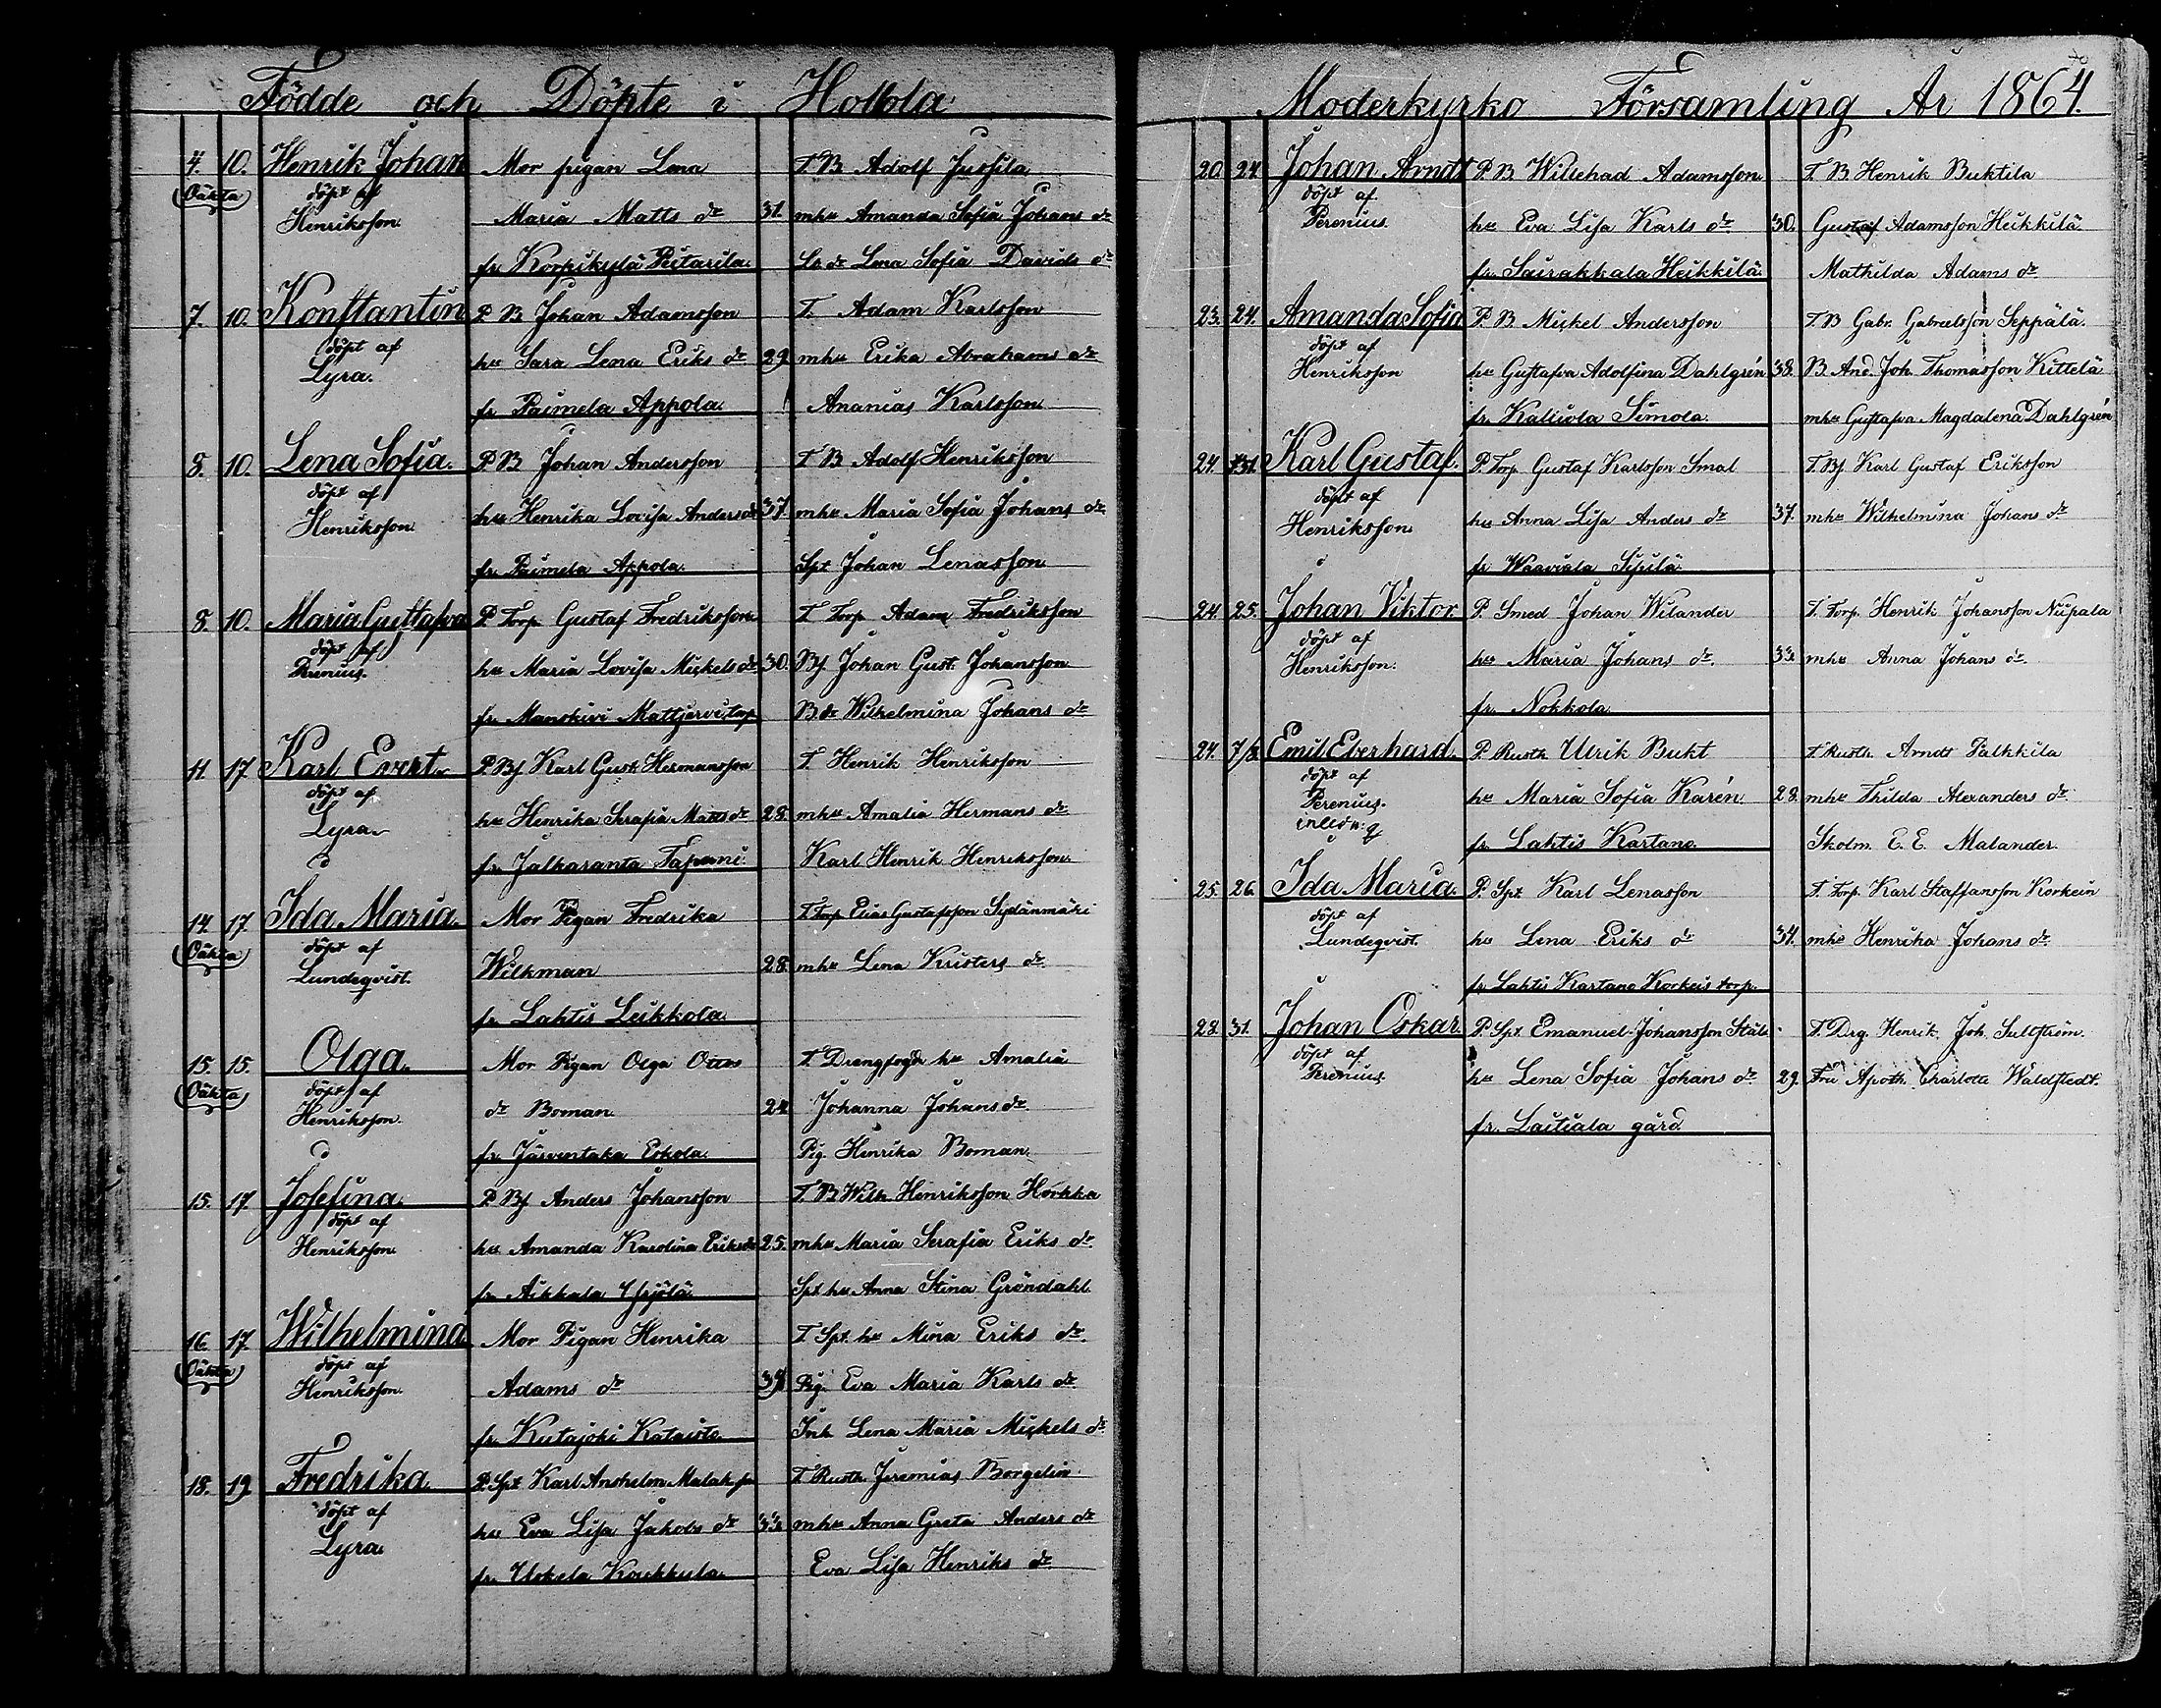 Födde och Döpte i Hollola
4. 10. Henrik Johan Mor pigan Lena T. B. Adolf Jussila
(Oäkta) döpt af Maria Matts dr 31. mhu Amanda Sofia Johans dr
Henriksson. fr. Korpikylä Pietarila. Ls dr Lena Sofia Davids dr
7. 10. Konstantin P. B. Johan Adamsson T. Adam Karlsson
döpt af hu Sara Lena Eriks dr 29. mhu Erika Abrahams dr
Lyra. fr. Paimela Appola. Ananias Karlsson
8. 10. Lena Sofia. P. B. Johan Andersson T. B. Adolf Henriksson
döpt af hu Henrika Lovisa Anders dr 37. mhu Maria Sofia Johans dr
Henriksson. fr. Paimela Appola. Spt Johan Lenasson
8. 10. Maria Gustafva P. Torp. Gustaf Fredriksson T. Torp. Adam Fredriksson
döpt af hu Maria Lovisa Mickels dr 30. Bs. Johan Gust. Johansson
Perenius. fr. Manskivi Mattjervi torp B. dr Wilhelmina Johans dr
11. 17. Karl Evert. P. Bs Karl Gust. Hermansson T. Henrik Henriksson
döpt af hu Henrika Serafia Matts dr 28. mhu Amalia Hermans dr
Lyra. fr. Jalkaranta Tapani. Karl Henrik Henriksson.
14. 17. Ida Maria. Mor Pigan Fredrika T. Torp. Elias Gustafsson Sydänmäki
(Oäkta) döpt af Wilkman 28. mhu Lena Kristers dr
Lundeqvist. fr. Lahtis Leikkola.
15. 15. Olga. Mor Pigan Olga Ottos T. Drengfogde hu Amalia
(Oäkta) döpt af dr Boman. 24 Johanna Johans dr.
Henriksson. fr. Järventaka Eskola. Pig. Henrika Boman.
15. 17. Josefina. P. Bs Anders Johansson T. B. Wilh. Henriksson Horkka
döpt af hu Amanda Karolina Eriks dr 25. mhu Maria Serafia Eriks dr.
Henriksson. fr. Aikkala Yrjölä. Spt hu Anna Stina Gröndahl
16. 17. Wilhelmina. Mor Pigan Henrika T. Spt. hu Mina Eriks dr.
(Oäkta) döpt af Adams dr Pig. Eva Maria Karls dr.
Henriksson. fr. Kutajoki Kataisto. Inh. Lena Maria Mickels dr.
18. 19. Fredrika. P. Spt Karl Anshelm T. Rusth. Jeremias Borgelin
döpt af hu Eva Lisa Jakobs dr 33. mhu Anna Greta Anders dr
Lyra. fr. Uskila Koukkula. Eva Lisa Henriks dr.
Moderkyrko Församling År 1864.
20. 24. Johan Arndt P. B. Willehad Adamsson T. B. Henrik Buktila
döpt af. hu Eva Lisa Karls dr. 30. Gustaf Adamsson Heikkilä.
Perenius. fr. Sairakkala Heikkilä. Mathilda Adams dr
23. 24. Amanda Sofia P. B. Mickel Andersson T. B. Gabr. Gabrielsson Seppälä.
döpt af hu Gustafva Adolfina Dahlgrén 38. B. And. Joh. Thomasson Kittelä
Henriksson fr. Kalliola Simola. mhu Gustafva Magdalena Dahlgrén
24. 31. Karl Gustaf. P. Torp. Gustaf Karlsson Smal T. Bs. Karl Gustaf Eriksson
döpt af hu Anna Lisa Anders dr 37. mhu Wilhelmina Johans dr
Henriksson. fr. Waaviala Sipilä.
24. 25. Johan Viktor. P. Smed Johan Wilander T. Torp. Henrik Johansson Niipala
döpt af hu Maria Johans dr. 33. mhu Anna Johans dr.
Henriksson. fr. Nokkola.
24. 7/2. Emil Eberhard. P. Rusth. Ulrik Bukt T. Rusth. Arndt Palkkila
döpt af hu Maria Sofia Karén. 28. mhu Thilda Alexanders dr.
Perenius. fr. Lahtis Kartano. Skolm. E. E. Malander.
25. 26. Ida Maria. P. Spt Karl Lenasson T. Torp. Karl Staffansson Korkein
döpt af hu Lena Eriks dr 34. mhu Henrika Johans dr.
Lundeqvist. fr. Lahtis Kartano Korkeis torp.
28. 31. Johan Oskar. P. Spt. Emanuel Johansson Stål T. Drg. Henrik Joh. Sultström.
döpt af hu Lena Sofia Johans dr. 29. Fru Apoth. Charlotta Waldstedt.
Perenius. fr. Laitiala gård